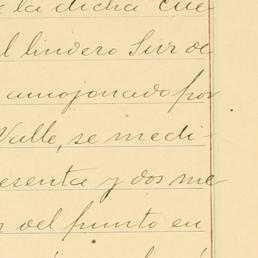 e la dicha cue
l lindero Sur de
amojonado por
Valle, se medi-
esenta y dos me
del punto en